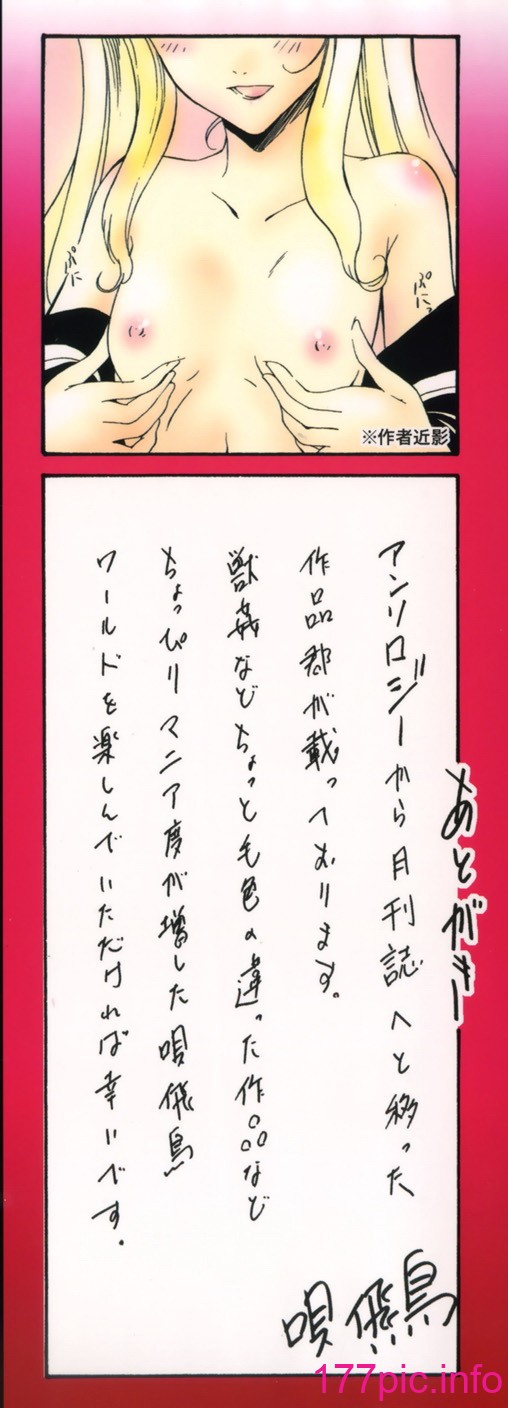 ぷに
ぷにっ
※作者近影
あとがきー
アンソロジーから月刊誌へと移った
作品郡が載っております。
獣姦などちょっと毛色の違った作品など
ちょっぴりマニア度が増した唄飛鳥
ワールドを楽しんでいただければ幸いです。
唄飛鳥
177pic.info